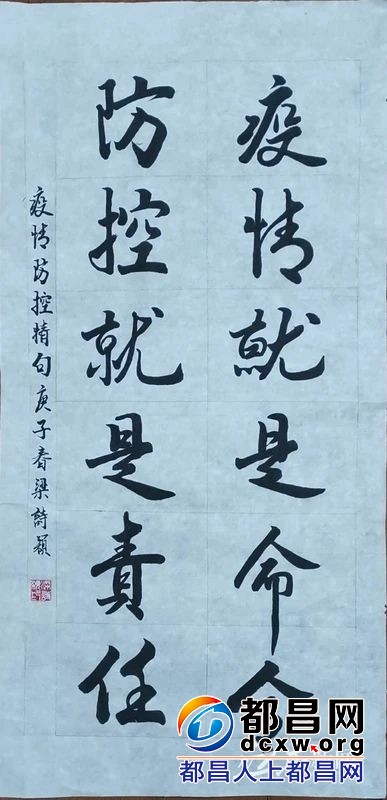 疫情就是命令
防控就是責任
疫情防控精句庚子春梁詩
都昌网
dcxw.org
都昌人上都昌网